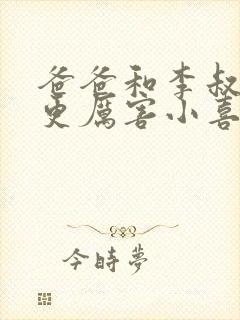 爸爸和李叔
更厲害小喜
今時夢